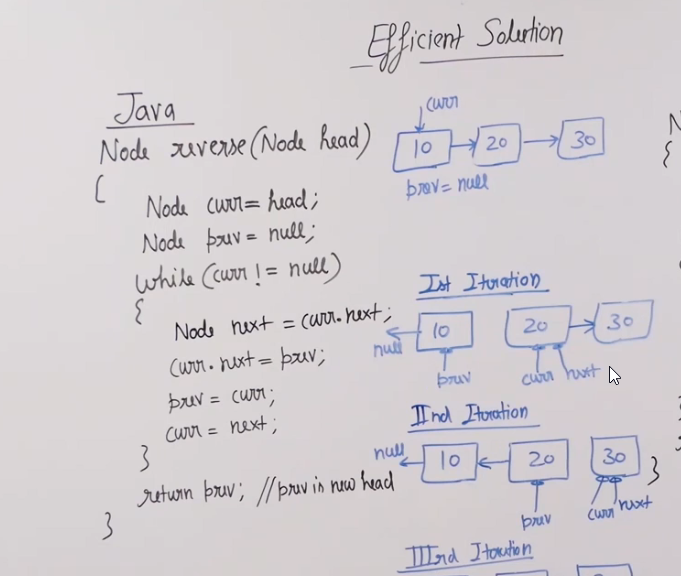 Efficient Solution
Java
Node reverse(Node head)
{
Node curr = head;
Node prev = null;
while (curr != null)
{
Node next = curr.next;
curr.next = prev;
prev = curr;
curr = next;
}
return prev; //prev is new head
}
curr
10 20 30
prev = null
Ist Iteration
null 10 20 30
prev curr next
IInd Iteration
null 10 20 30
prev curr next
IIIrd Iteration
N
{
}